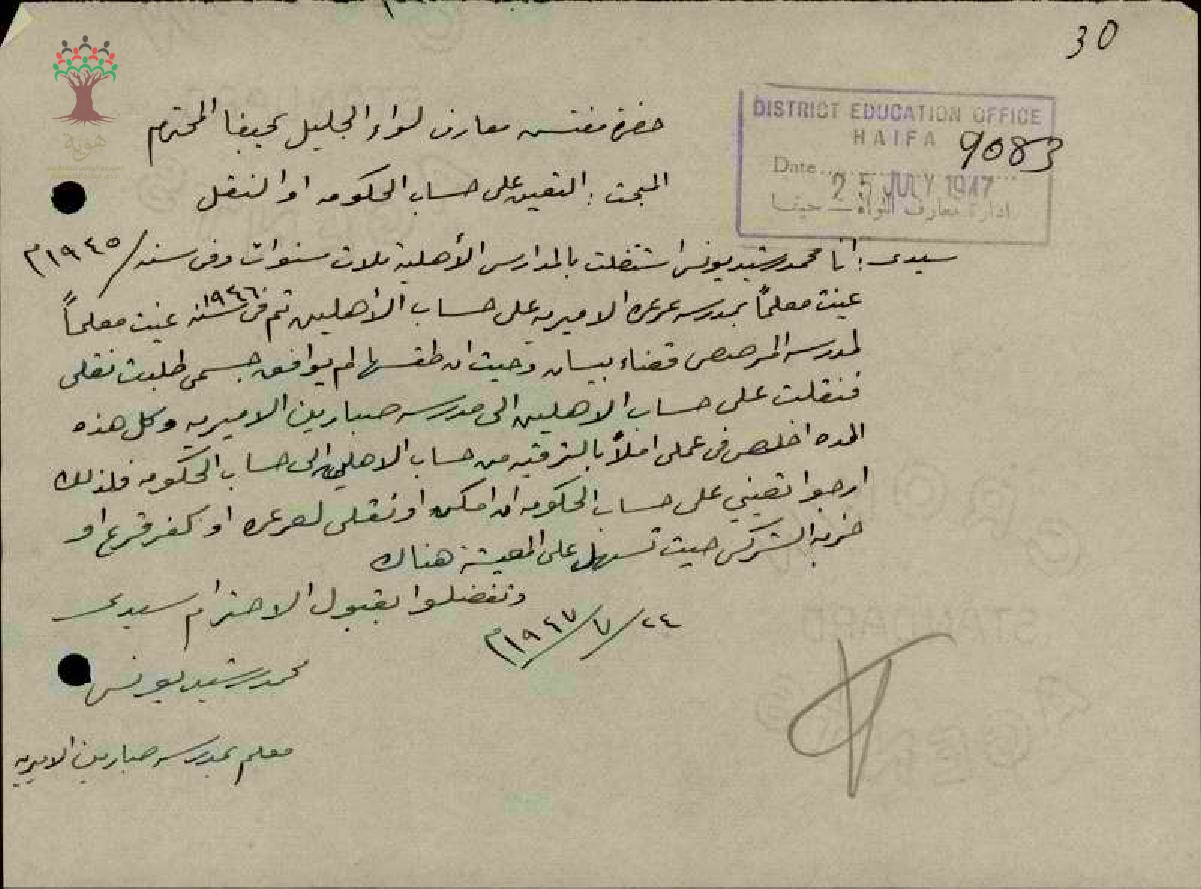 30
حضرة مفتش معارف لواء الجليل بحيفا المحترم
DISTRICT EDUCATION OFFICE
HAIFA
9083
Date 25 JULY 1947
ادارة معارف اللواء – حيفا
المبحث : التعيين على حساب الحكومه او النقل
سيدي : انا محمد رشيد يونس اشتغلت بالمدارس الأهلية ثلاث سنوات وفي سنه / ١٩٤٥م
عينت معلماً بمدرسه عرعره الاميريه على حساب الاهليين ثم في سنة ١٩٤٦ عينت معلماً
لمدرسه المرصص قضاء بيسان وحيث ان طقسها لم يوافق جسمي طلبت نقلي
فنقلت على حساب الاهليين الى مدرسه صبارين الاميريه وكل هذه
المده اخلص في عملي املاً بالترقيه من حساب الاهليين الى حساب الحكومه فلذلك
ارجوا تعيني على حساب الحكومه ان امكن او نقلي لعرعره او كفر قرع او
خربة الشركس حيث تسهل علي المعيشة هناك
وتفضلوا بقبول الاحترام سيدي
٢٤/٧/١٩٤٧م
محمد رشيد يونس
معلم بمدرسه صبارين الاميريه
هوية